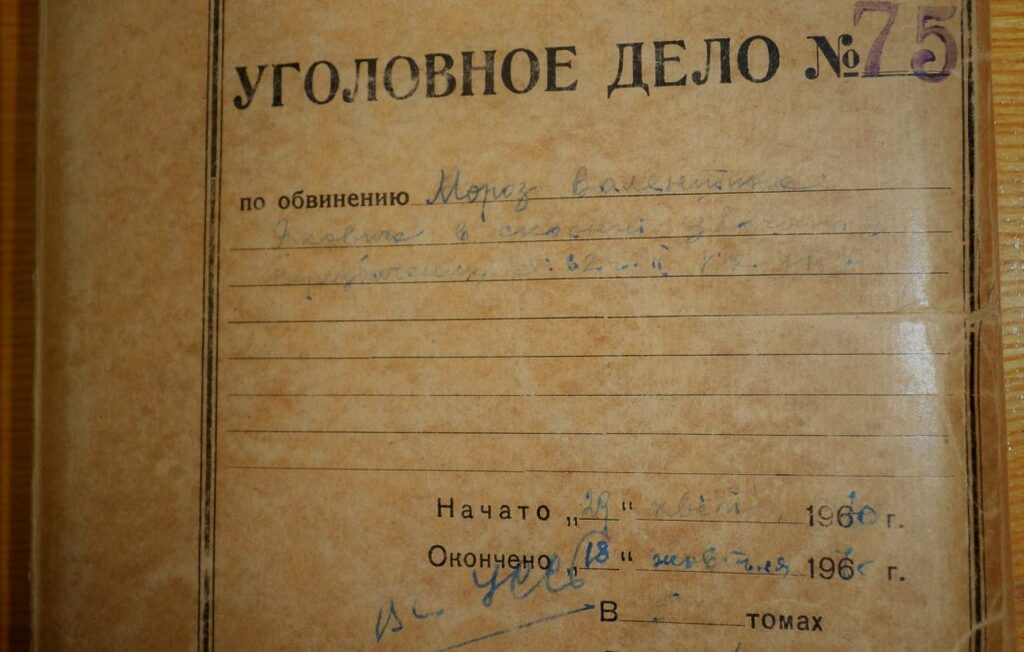 УГОЛОВНОЕ ДЕЛО № 75
по обвинению Мороз Валентина
Яковича в скоєнні злочинів
передбачених 62 ч. II
Начато „29“ квітня 1970 г.
Окончено „18“ жовтня 196 г.
В томах